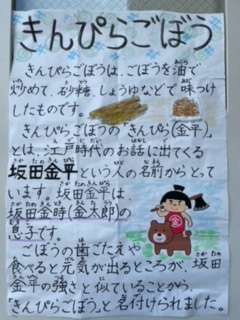 きんぴらごぼう
きんぴらごぼうは、ごぼうを油で
炒めて、砂糖、しょうゆなどで味つけ
したものです。
きんぴらごぼうの「きんぴら(金平)」
とは、江戸時代のお話に出てくる
坂田金平という人の名前からとって
います。坂田金平は、
坂田金時(金太郎)の
息子です。
ごぼうの歯ごたえや
食べると元気が出るところが、坂田
金平の強さと似ていることから、
「きんぴらごぼう」と名付けられました。